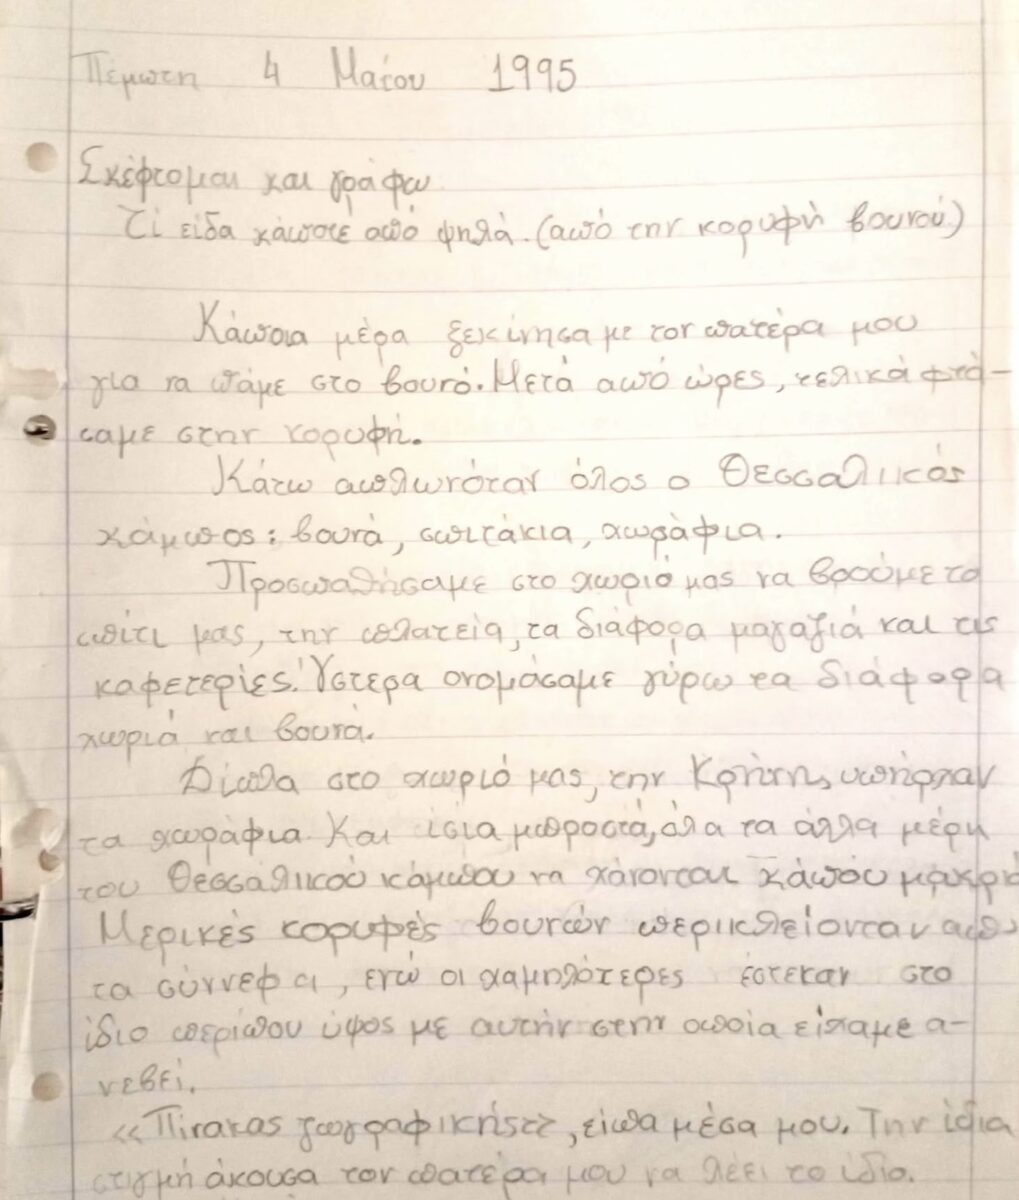 Πέμπτη 4 Μαΐου 1995
Σκέφτομαι και γράφω
Τί είδα κάποτε από ψηλά. (από την κορυφή βουνού)
Κάποια μέρα ξεκίνησα με τον πατέρα μου
για να πάμε στο βουνό. Μετά από ώρες, τελικά φτά-
σαμε στην κορυφή.
Κάτω απλωνόταν όλος ο Θεσσαλικός
κάμπος: βουνά, σπιτάκια, χωράφια.
Προσπαθήσαμε στο χωριό μας να βρούμε το
σπίτι μας, την πλατεία, τα διάφορα μαγαζιά και τις
καφετερίες. Ύστερα ονομάσαμε γύρω τα διάφορα
χωριά και βουνά.
Δίπλα στο χωριό μας, την Κρήνη, υπήρχαν
τα χωράφια. Και ίσια μπροστά, όλα τα άλλα μέρη
του Θεσσαλικού κάμπου να χάνονται κάπου μακριά
Μερικές κορυφές βουνών περικλείονταν από
τα σύννεφα, ενώ οι χαμηλότερες έστεκαν στο
ίδιο περίπου ύψος με αυτήν στην οποία είχαμε α-
νεβεί.
«Πίνακας ζωγραφικής», είπα μέσα μου. Την ίδια
στιγμή άκουσα τον πατέρα μου να λέει το ίδιο.